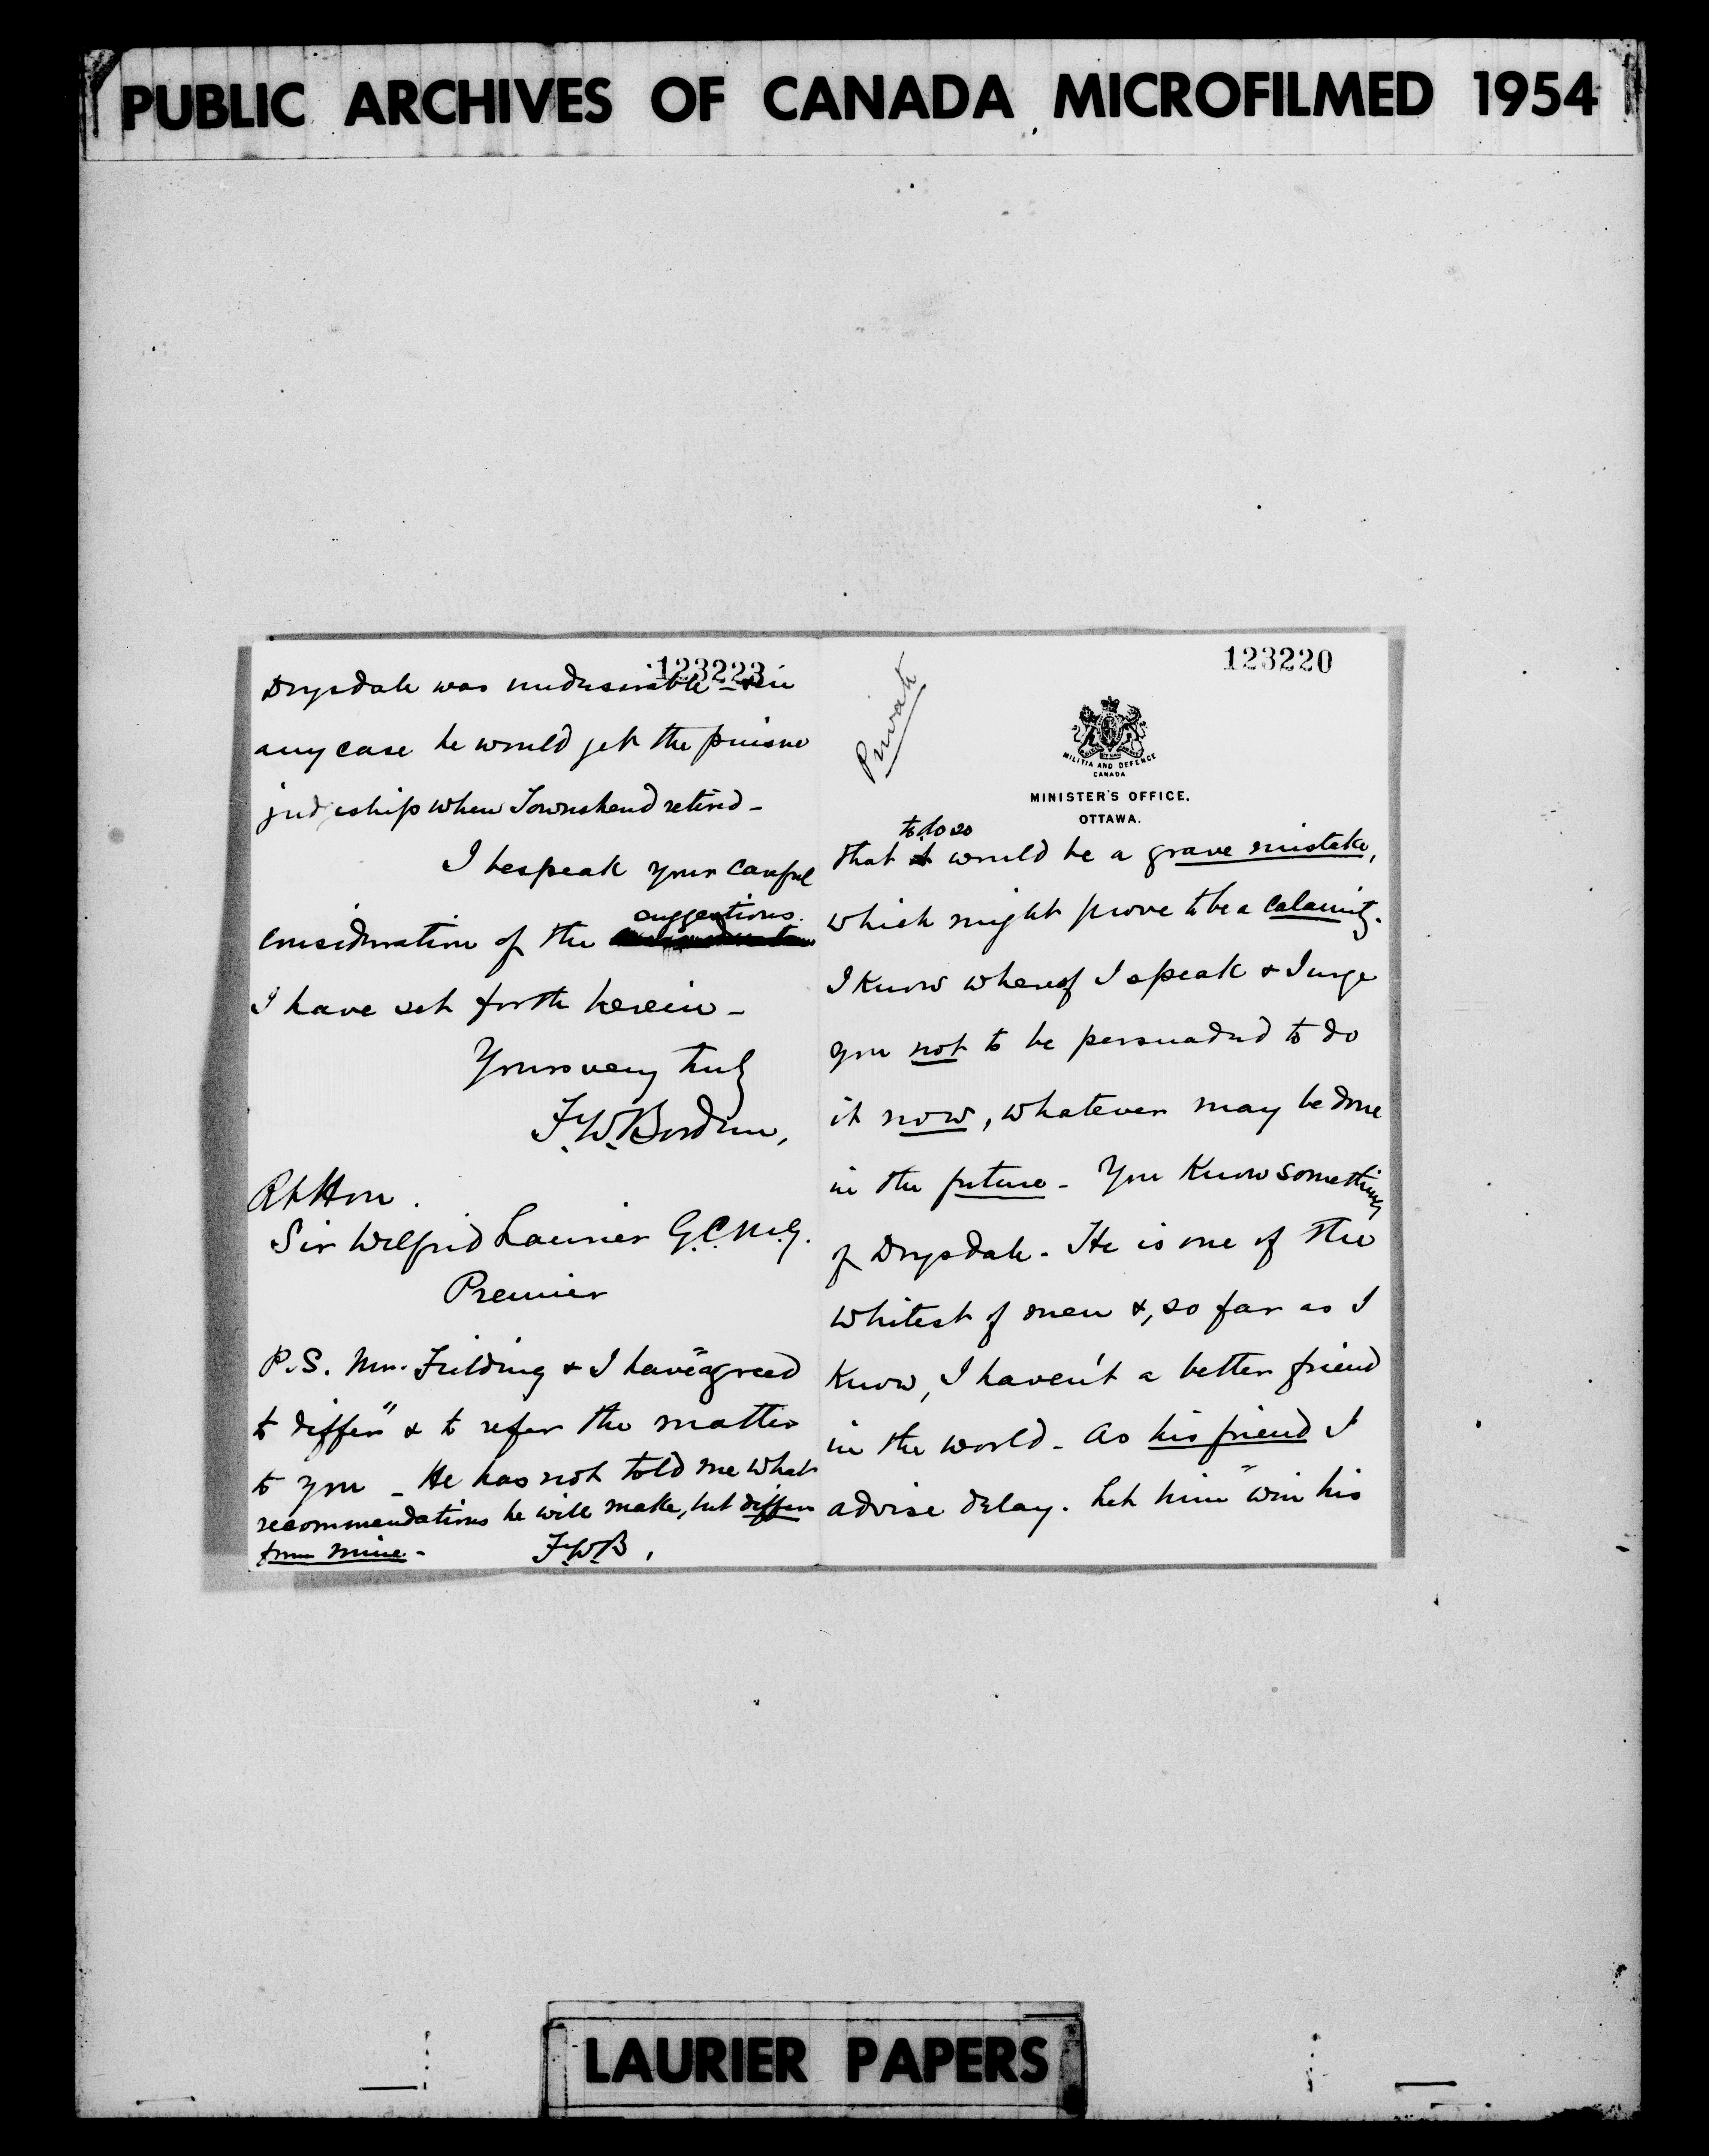 PUBLIC ARCHIVES OF CANADA MICROFILMED 1954
123223
Drysdale was undesirable - & in
any case he would get the puisne
judgeship when Townshend retired -
I bespeak your careful
suggestions.
consideration of the
I have set forth herein -
Yours very truly
F.W. Borden,
Rt Hon.
Sir Wilfrid Laurier G.C.M.G.
Premier
P.S. Mr. Fielding & I have "agreed
to differ" & to refer the matter
to you - He has not told me what
recommendations he will make, but differs
from mine. - F.W.B.
123220
Private
MILITIA AND DEFENCE
CANADA
MINISTER'S OFFICE.
OTTAWA.
to do so
that it would be a grave mistake,
which might prove to be a calamity.
I know whereof I speak & I urge
you not to be persuaded to do
it now, whatever may be done
in the future - You know something
of Drysdale. He is one of the
whitest of men &, so far as I
know, I haven't a better friend
in the world - As his friend I
advise delay. Let him "win his
LAURIER PAPERS